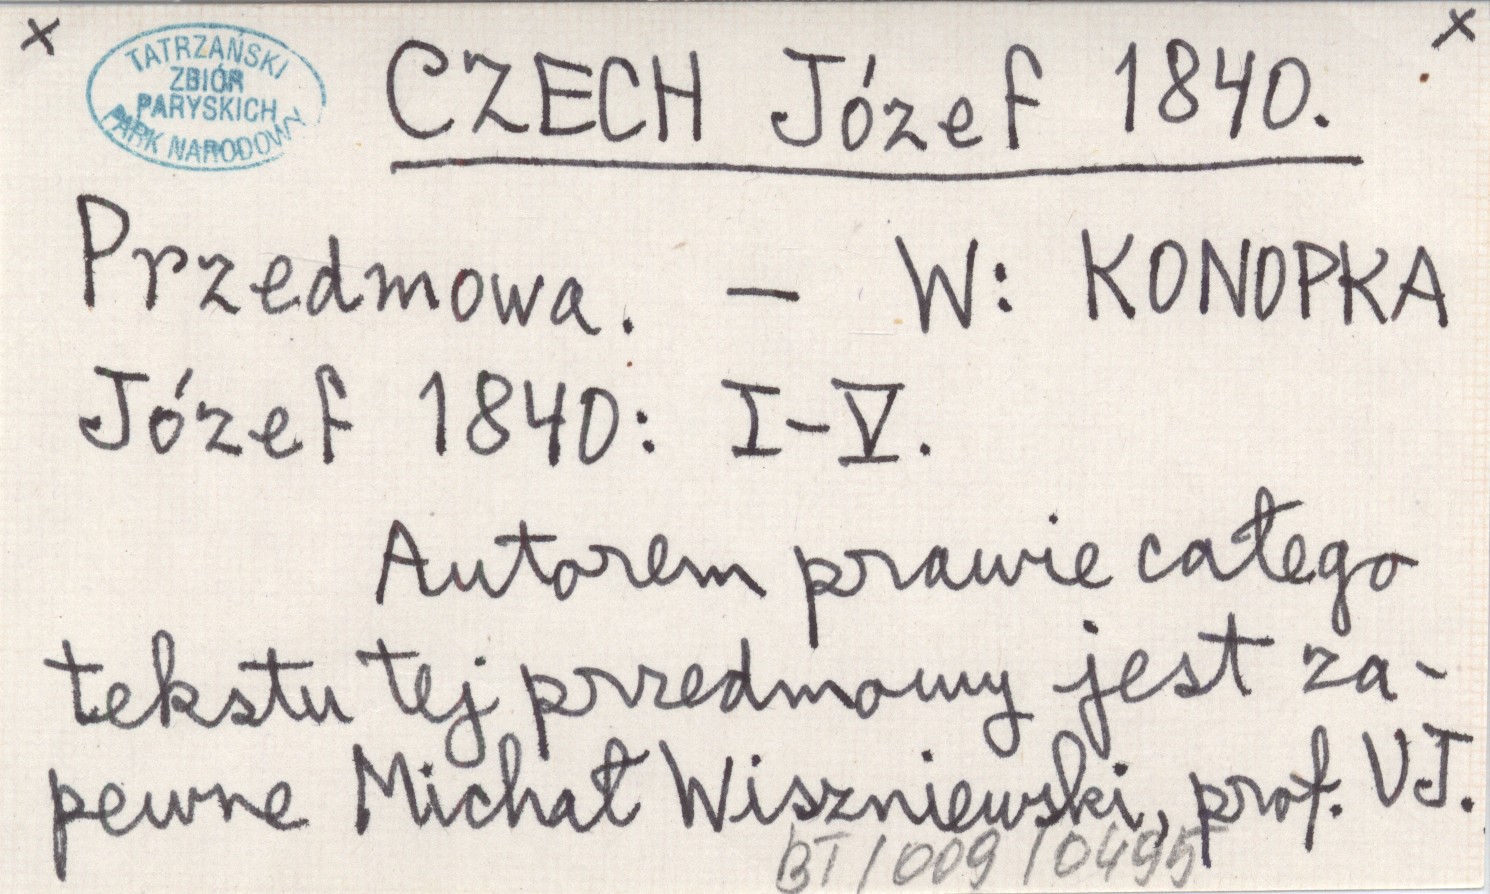 x x
TATRZAŃSKI
ZBIÓR
PARYSKICH
PARK NARODOWY
CZECH Józef 1840.
Przedmowa. – W: KONOPKA
Józef 1840: I-V.
Autorem prawie całego
tekstu tej przedmowy jest za-
pewne Michał Wiszniewski, prof. UJ.
BT/009/0495